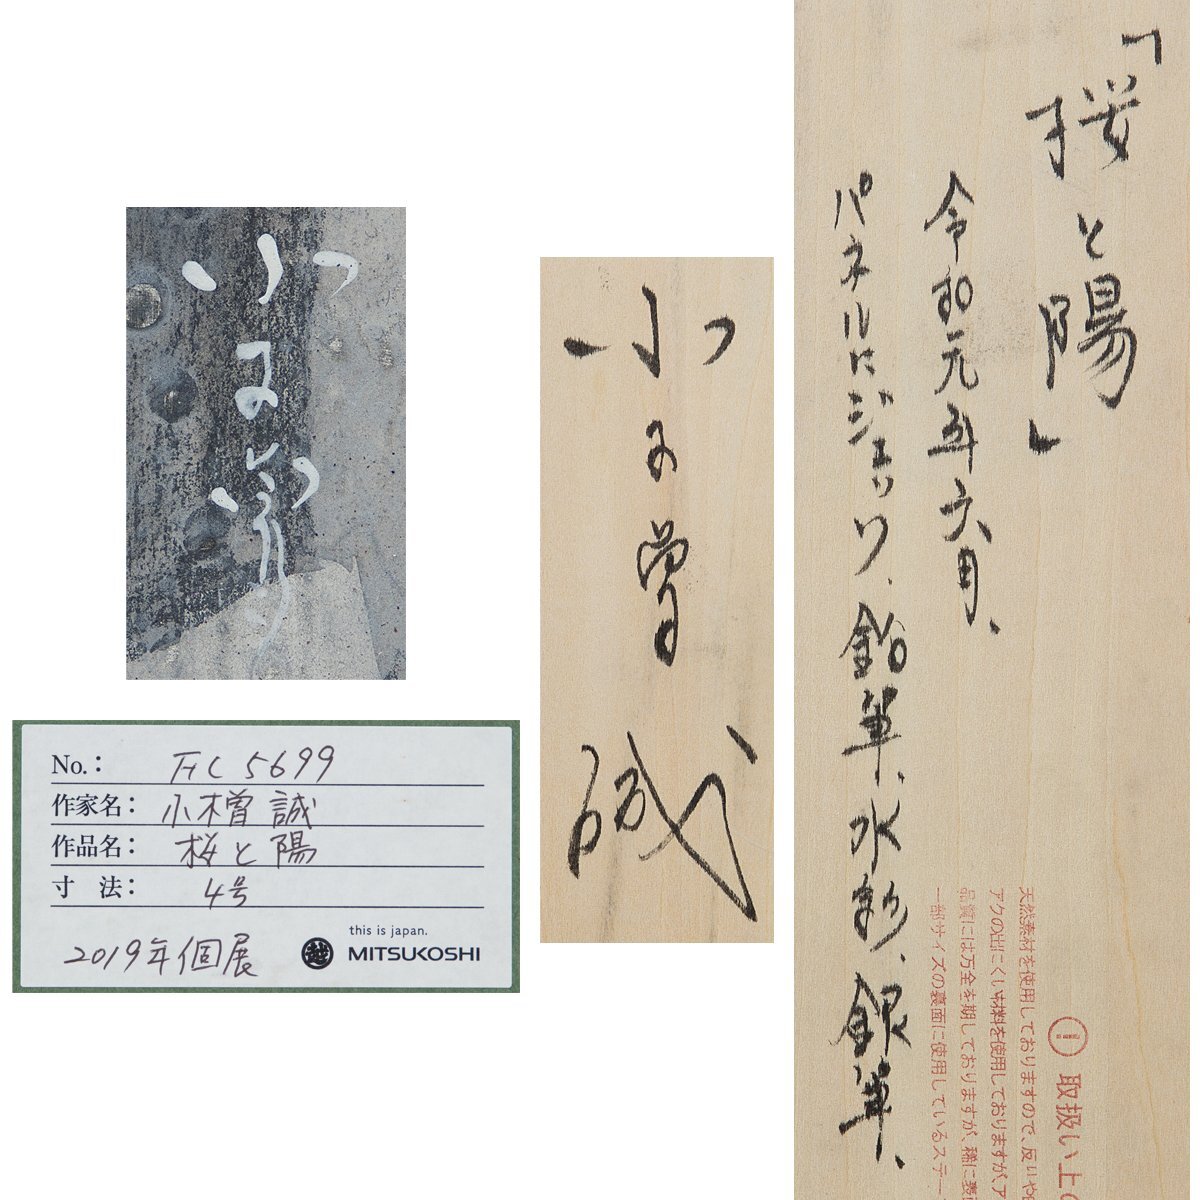 小木曽
No.: FC 5699
作家名: 小木曽 誠
作品名: 桜と陽
寸 法: 4号
2019年個展
this is japan.
MITSUKOSHI
小木曽 誠
「桜と陽」
令和元年六月、
パネルにジェッソ、鉛筆、水彩、銀筆、
取扱い上の
天然素材を使用しておりますので、反りや
アクの出にくい材料を使用しておりますが、ア
品質には万全を期しておりますが、稀に
一部サイズの裏面に使用しているステー